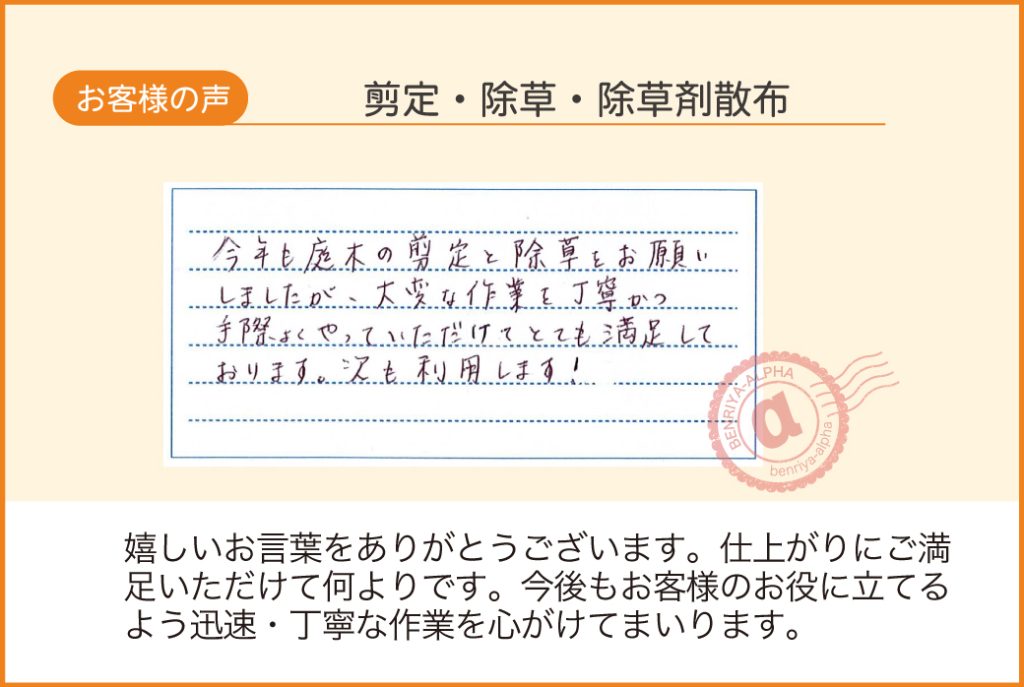 お客様の声
剪定・除草・除草剤散布
今年も庭木の剪定と除草をお願い
しましたが、大変な作業を丁寧かつ
手際よくやっていただけてとても満足して
おります。次も利用します!
BENRIYA-ALPHA
α
benriya-alpha
嬉しいお言葉をありがとうございます。仕上がりにご満
足いただけて何よりです。今後もお客様のお役に立てる
よう迅速・丁寧な作業を心がけてまいります。